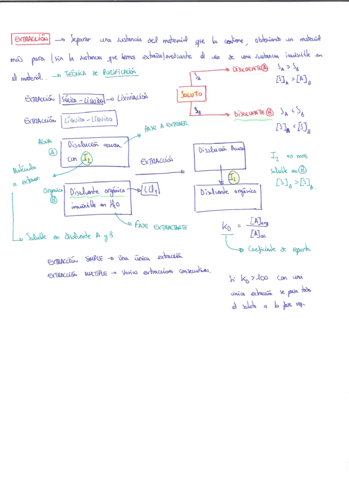 EXTRACCIÓN → Separar una sustancia del material que la contiene, obteniendo un material
más puro (sin la sustancia que hemos extraído) mediante el uso de una sustancia inmiscible en
el material. → TÉCNICA DE PURIFICACIÓN
DISOLVENTE A S_A > S_B
[S]_A > [S]_B
S_A
EXTRACCIÓN SÓLIDO-LÍQUIDO → LIXIVIACIÓN
SOLUTO
EXTRACCIÓN LÍQUIDO-LÍQUIDO
S_B
DISOLVENTE B S_A < S_B
[S]_A < [S]_B
FASE A EXTRAER
Agua
A
Disolución acuosa
con I₂
EXTRACCIÓN
Disolución Acuosa
I₂
I₂ es más
soluble en B
[S]_B > [S]_A
Molécula
a extraer
Orgánico
B
Disolvente orgánico
inmiscible en H₂O
CCl₄
Disolvente orgánico
FASE EXTRACTANTE
K_D = [A]org / [A]ac
Coeficiente de reparto
Soluble en disolvente A y B
EXTRACCIÓN SIMPLE → Una única extracción
EXTRACCIÓN MÚLTIPLE → Varias extracciones consecutivas
Si K_D > 100 con una
única extracción se pasa todo
el soluto a la fase org.